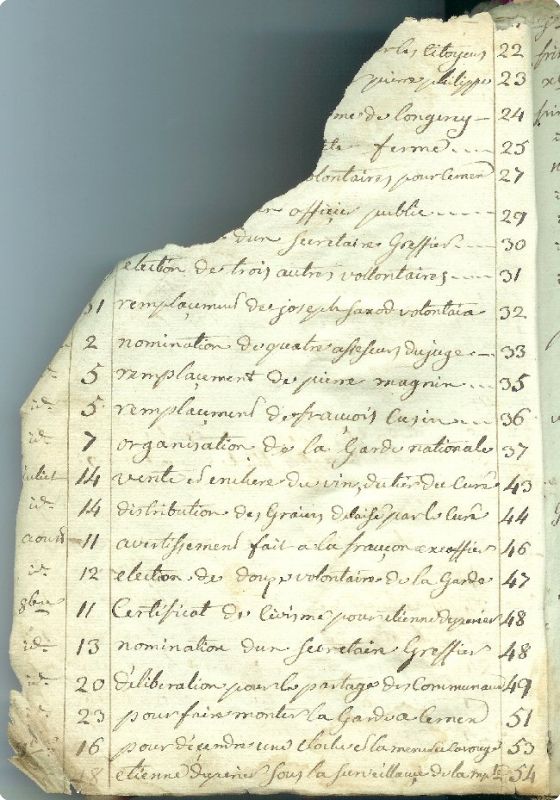 les citoyens 22
pierre philippe 23
de Longerey 24
ferme 25
volontaires pour lemen 27
officier public 29
dun Secretaire Greffier 30
election de trois autres vollontaires 31
31 remplaçement de joseph Saxod volontaire 32
2 nomination de quatre assesseurs du juge 33
5 remplaçement de pierre magnin 35
id. 5 remplaçement de françois Cusin 36
id. 7 organisation de la Garde nationale 37
juliet 14 vente du vin, du Curé 43
id. 14 distribution des Grains délaisé par le Curé 44
aoust 11 avertissement fait a la françon 46
id. 12 election de volontaire de la Garde 47
8bre 11 Certificat de Civisme pour etienne duperier 48
id. 13 nomination dun Secretaire Greffier 48
id. 20 déliberation pour le partage des Communaux 49
23 pour faire monter la Garde a lemen 51
16 pour décendre une Cloche et la mener 53
18 etienne duperier sous la surveillance de la 54